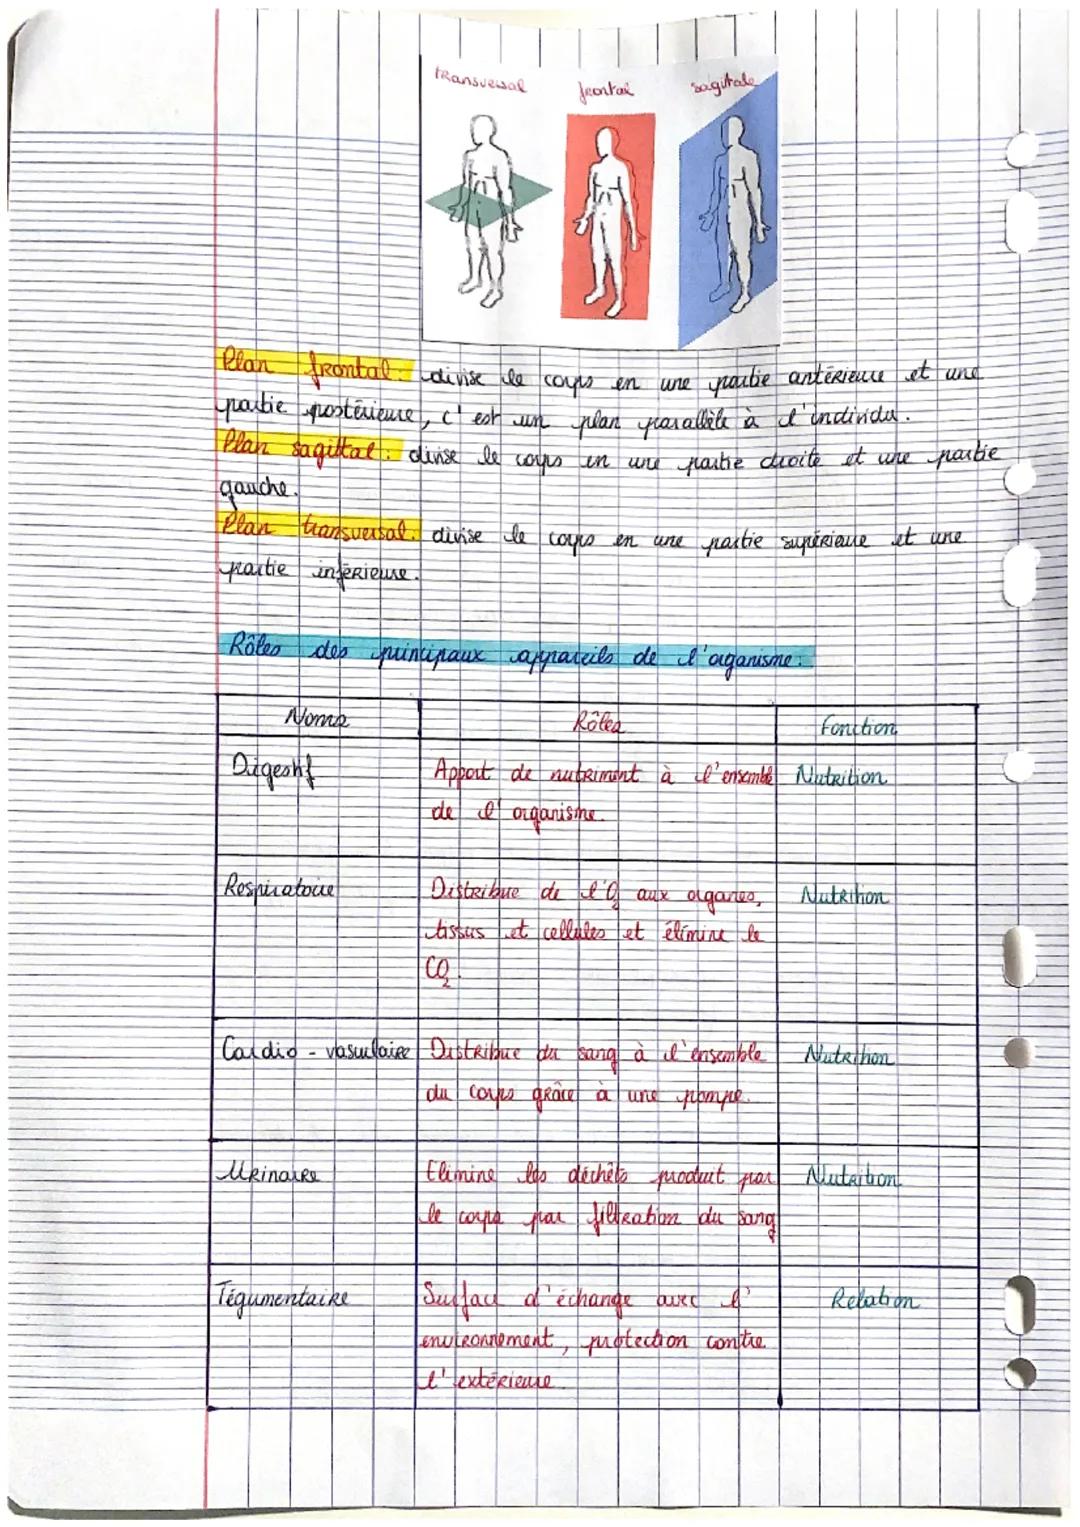 transversal frontal sagitale
Plan frontal : divise le corps en une partie antérieure et une
partie postérieure, c'est un plan parallèle à l'individu.
Plan sagittal : divise le corps en une partie droite et une partie
gauche.
Plan transversal : divise le corps en une partie supérieure et une
partie inférieure.
Rôles des principaux appareils de l'organisme :
Noms Rôles Fonction
Digestif Apport de nutriment à l'ensemble Nutrition
de l'organisme.
Respiratoire Distribue de l'O₂ aux organes, Nutrition
tissus et cellules et élimine le
CO₂.
Cardio-vasculaire Distribue du sang à l'ensemble Nutrition
du corps grâce à une pompe.
Urinaire Elimine les déchêts produit par Nutrition
le corps par filtration du sang
Tégumentaire Surface d'échange avec l' Relation
environnement, protection contre
l'extérieure